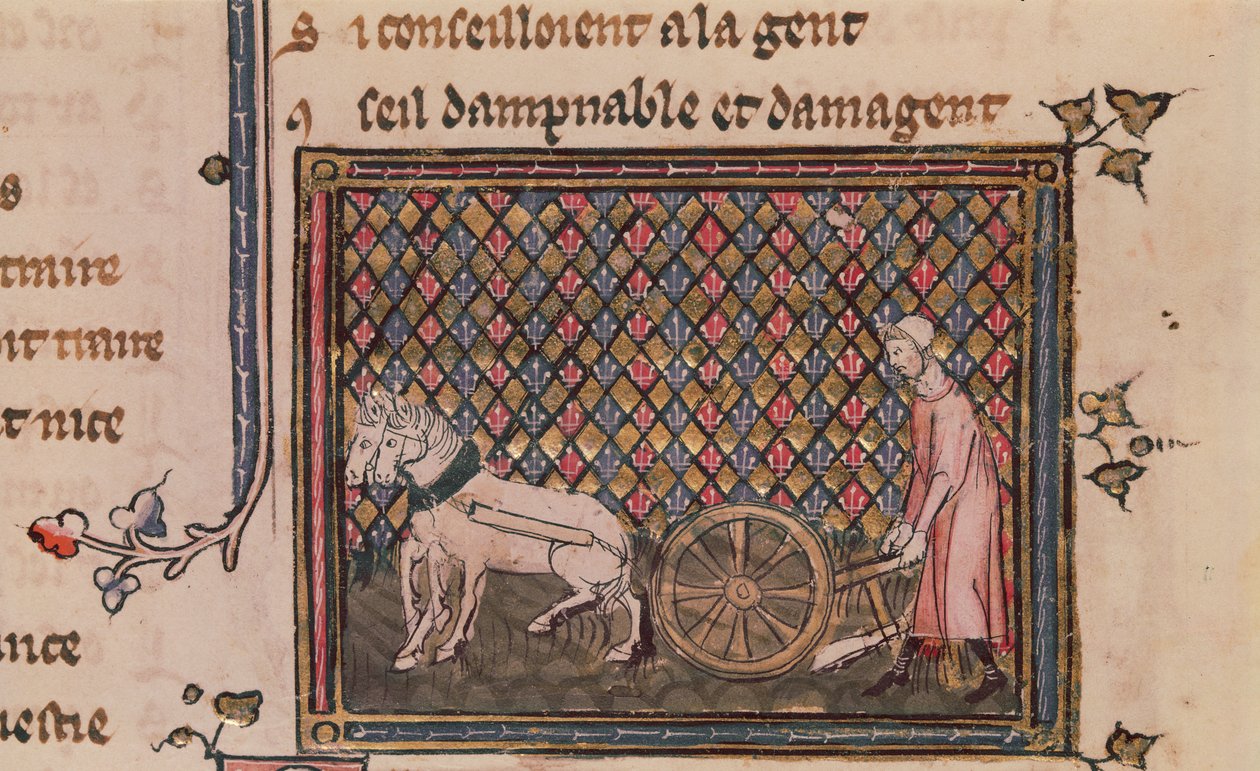 S i conseilloient a la gent
9 seil dampnable et damagent
s
traire
oit traire
t nice
ance
uestie